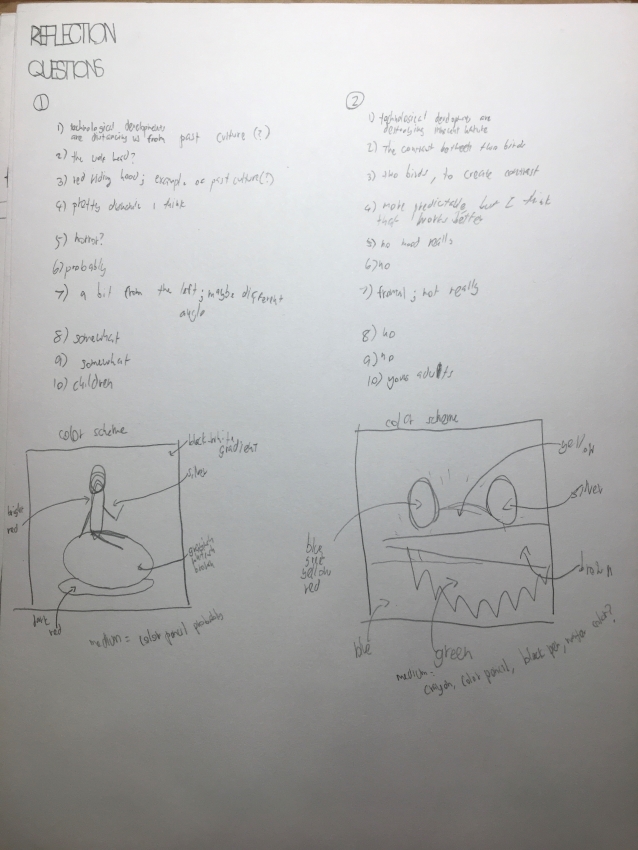 REFLECTION
QUESTIONS
①
1) technological developments
are distancing us from past culture (?)
2) the wolf head?
3) red riding hood; example of past culture(?)
4) pretty I think
5) horror?
6) probably
7) a bit from the left; maybe different
angle
8) somewhat
9) somewhat
10) children
②
1) technological are
destroying
2) the contrast between two birds
3) two birds, to create contrast
4) more predictable, but I think
that works better
5) no mood really
6) no
7) frontal; not really
8) no
9) no
10) young adults
color scheme
black-white
gradient?
silver
bright
red
gradient
dark
red
medium = color pencil probably
color scheme
yellow
silver
blue
yellow
red
brown
blue
green
medium =
crayon, color pencil, black pen, water color?